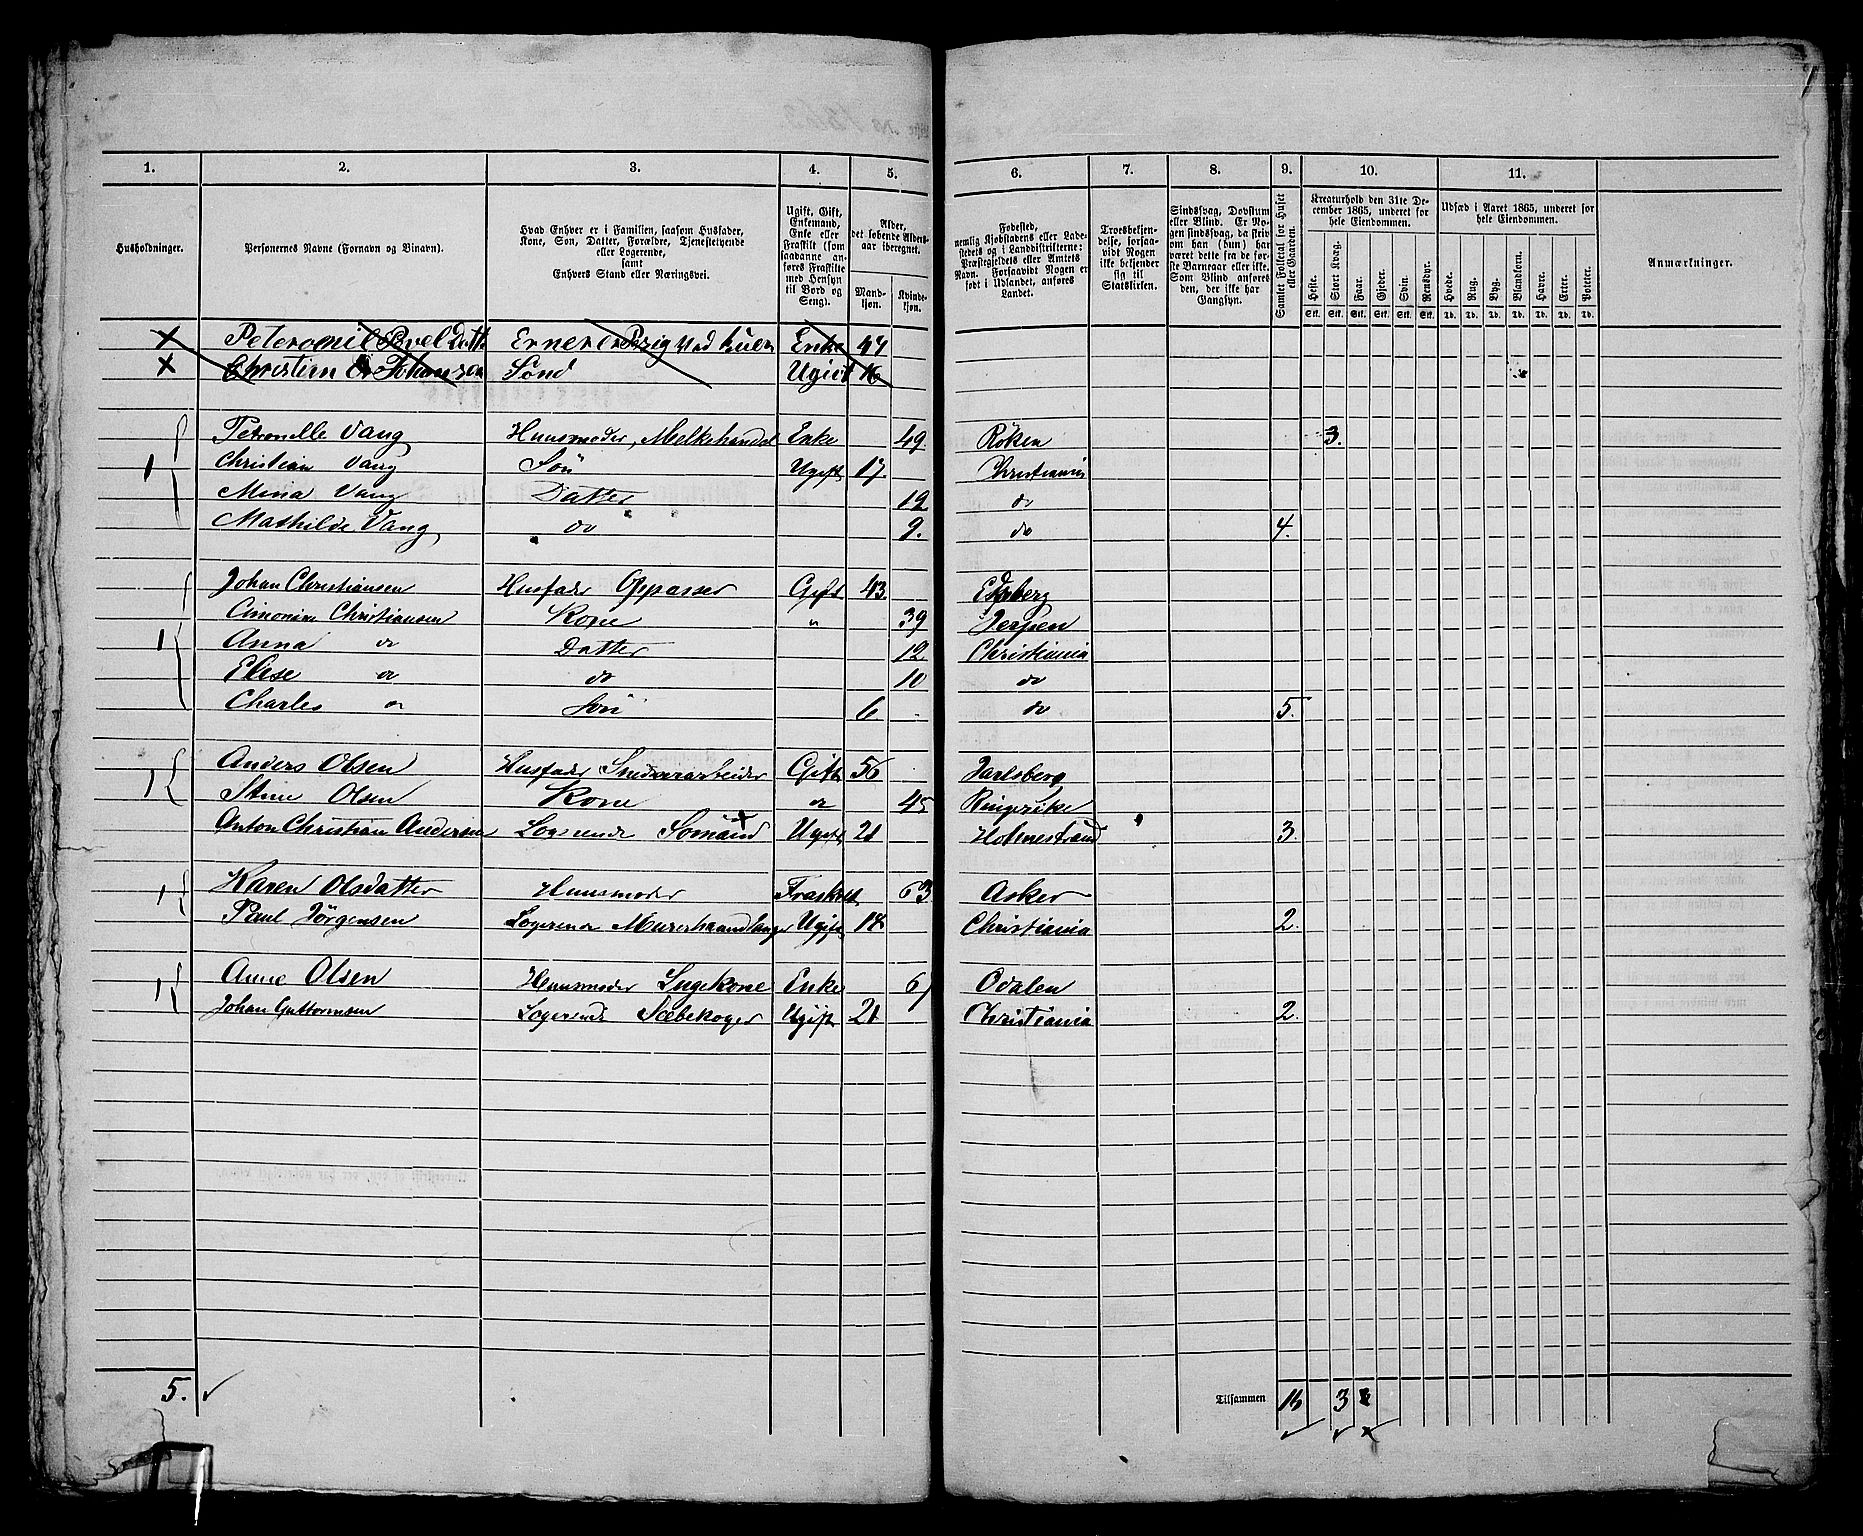 1. 2. 3. 4. 5. 6. 7. 8. 9. 10. 11.
Husholdninger.
Personernes Navne (Fornavn og Binavn).
Hvad Enhver er i Familien, saasom Husfader, Kone, Søn, Datter, Forældre, Tjenestetyende eller Logerende, samt Enhvers Stand eller Næringsvei.
Ugift, Gift, Enkemand, Enke eller Fraskilt (som saadanne anføres Fraskilte med Hensyn til Bord og Seng).
Alder, det løbende Alders-aar iberegnet.
Mand-kjøn. Kvinde-kjøn.
Fødested, nemlig Kjøbstadens eller Ladestedets og i Landdistrikterne: Præstegjeldets eller Amtets Navn. Forsaavidt Nogen er født i Udlandet, anføres Landet.
Troesbekjendelse, forsaavidt Nogen ikke bekjender sig til Statskirken.
Sindssvag, Døvstum eller Blind. Er Nogen sindssvag, da skrives om han (hun) har været dette fra de første Barneaar eller ikke. Som Blind anføres den, der ikke har Gangsyn.
Samlet Folketal for Huset eller Gaarden.
Kreaturhold den 31te December 1865, underet for hele Eiendommen.
Heste. Stort Kvæg. Faar. Gjeder. Svin. Rensdyr.
Stk. Stk. Stk. Stk. Stk. Stk.
Udsæd i Aaret 1865, underet for hele Eiendommen.
Hvede. Rug. Byg. Blandkorn. Havre. Erter. Poteter.
Td. Td. Td. Td. Td. Td. Td.
Anmærkninger.
Enke 47
Christien Johansen Sønd Ugivt 16
Petronelle Vang Huusmoder, Melkehandel Enke 49. Röken 3.
1 Christian Vang Sön Ugift 17. Christiania
Mina Vang Datter 12 do
Mathilde Vang do 9. do 4.
Johan Christiansen Husfader Oppasser Gift 43.
Christiansen Kone " 39
1 Anna do Datter 12 Christiania
Elise do do 10 do
Charles do Sön 6 do 5.
1 Anders Olsen Husfader Gift 56 Jarlsberg
Olsen Kone do 45 Ringerike
Anton Christian Andersen Logerende Sömand Ugift 21 Holmestrand 3.
1 Karen Olsdatter Huusmoder Fraskilt 63 Asker
Paul Jörgensen Logerende Murerhaandlanger Ugift 18 Christiania 2.
1 Anne Olsen Huusmoder Enke 61 Odalen
Johan Guttormsen Logerende Sæbekoger Ugift 21 Christiania 2.
5. Tilsammen 16 3